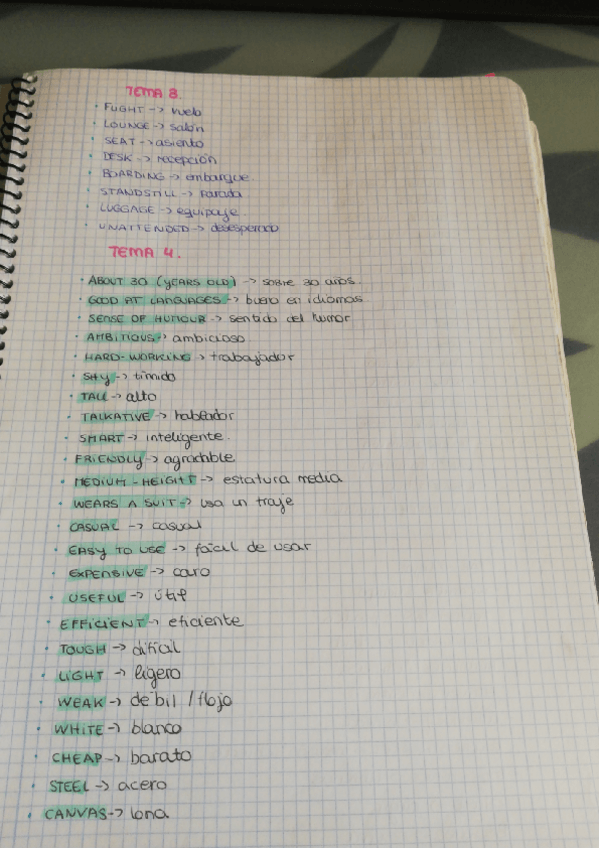 TEMA 3.
• FLIGHT -> vuelo
• LOUNGE -> salón
• SEAT -> asiento
• DESK -> recepción
• BOARDING -> embarque
• STANDSTILL -> parada
• LUGGAGE -> equipaje
• UNATTENDED -> desesperado
TEMA 4.
• ABOUT 30 (YEARS OLD) -> sobre 30 años.
• GOOD AT LANGUAGES -> bueno en idiomas
• SENSE OF HUMOUR -> sentido del humor
• AMBITIOUS -> ambicioso
• HARD-WORKING -> trabajador
• SHY -> tímido
• TALL -> alto
• TALKATIVE -> hablador
• SMART -> inteligente.
• FRIENDLY -> agradable
• MEDIUM-HEIGHT -> estatura media
• WEARS A SUIT -> usa un traje
• CASUAL -> casual
• EASY TO USE -> fácil de usar
• EXPENSIVE -> caro
• USEFUL -> útil
• EFFICIENT -> eficiente
• TOUGH -> difícil
• LIGHT -> ligero
• WEAK -> débil / flojo
• WHITE -> blanco
• CHEAP -> barato
• STEEL -> acero
• CANVAS -> lona